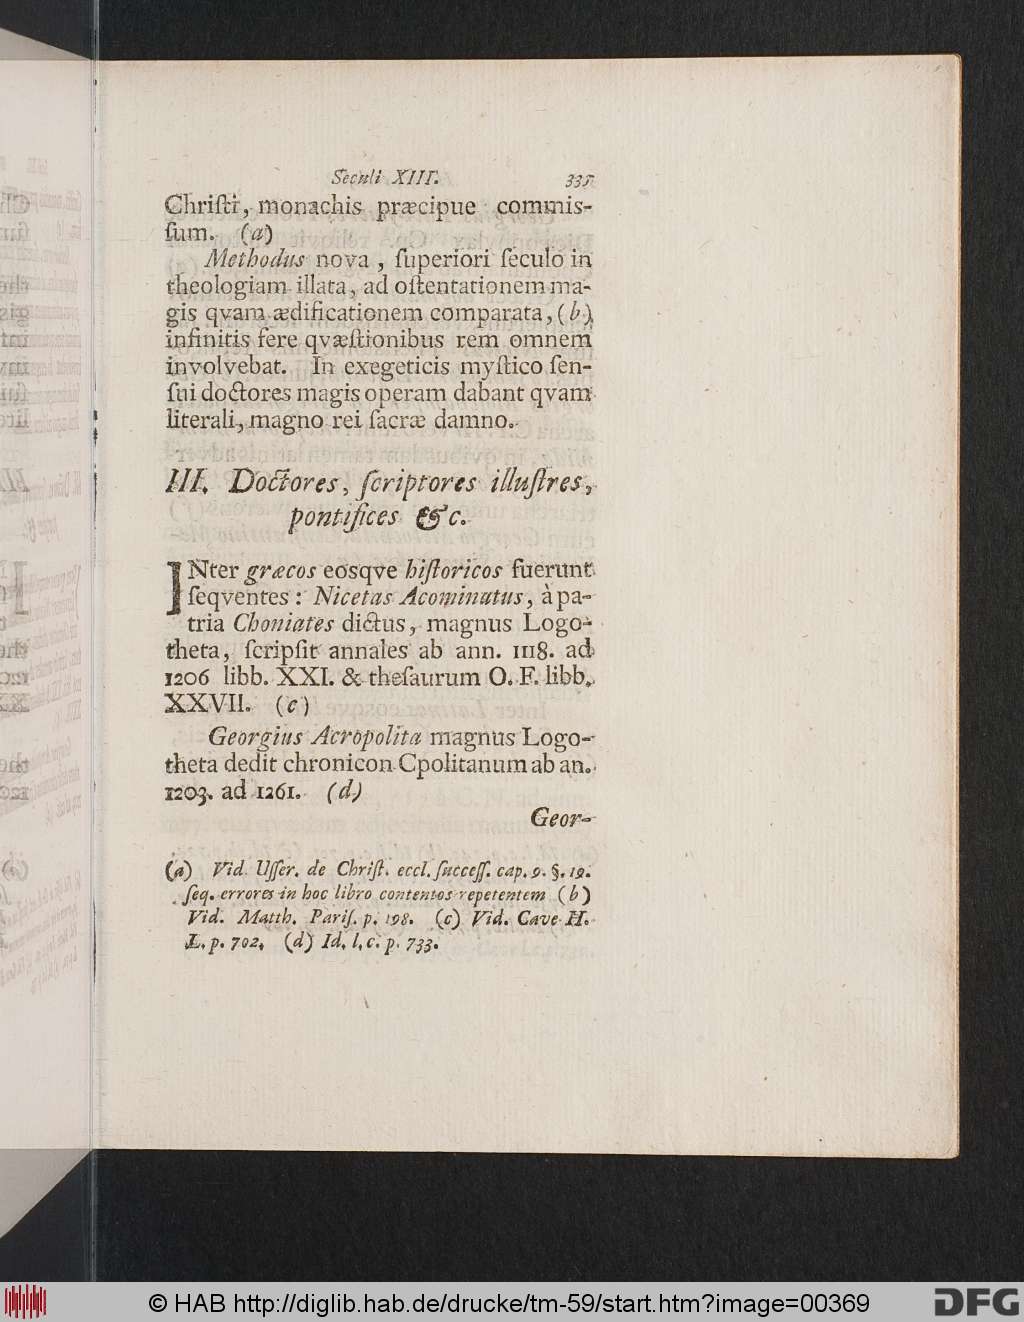 Seculi XIII. 335
Chriſti, monachis præcipue commis-
ſum. (a)
Methodus nova, ſuperiori ſeculo in
theologiam illata, ad oſtentationem ma-
gis qvam ædificationem comparata, (b)
infinitis fere qvæſtionibus rem omnem
involvebat. In exegeticis myſtico ſen-
ſui doctores magis operam dabant qvam
literali, magno rei ſacræ damno.
III. Doctores, ſcriptores illuſtres,
pontifices &c.
INter græcos eosqve hiſtoricos fuerunt
ſeqventes: Nicetas Acominatus, à pa-
tria Choniates dictus, magnus Logo-
theta, ſcripſit annales ab ann. 1118. ad
1206 libb. XXI. & theſaurum O. F. libb.
XXVII. (c)
Georgius Acropolita magnus Logo-
theta dedit chronicon Cpolitanum ab an.
1203. ad 1261. (d)
Geor-
(a) Vid. Uſſer. de Chriſt. eccl. ſucceſſ. cap. 9. §. 19.
ſeq. errores in hoc libro contentos repetentem (b)
Vid. Matth. Pariſ. p. 198. (c) Vid. Cave H.
L. p. 702, (d) Id. l. c. p. 733.
© HAB http://diglib.hab.de/drucke/tm-59/start.htm?image=00369
DFG